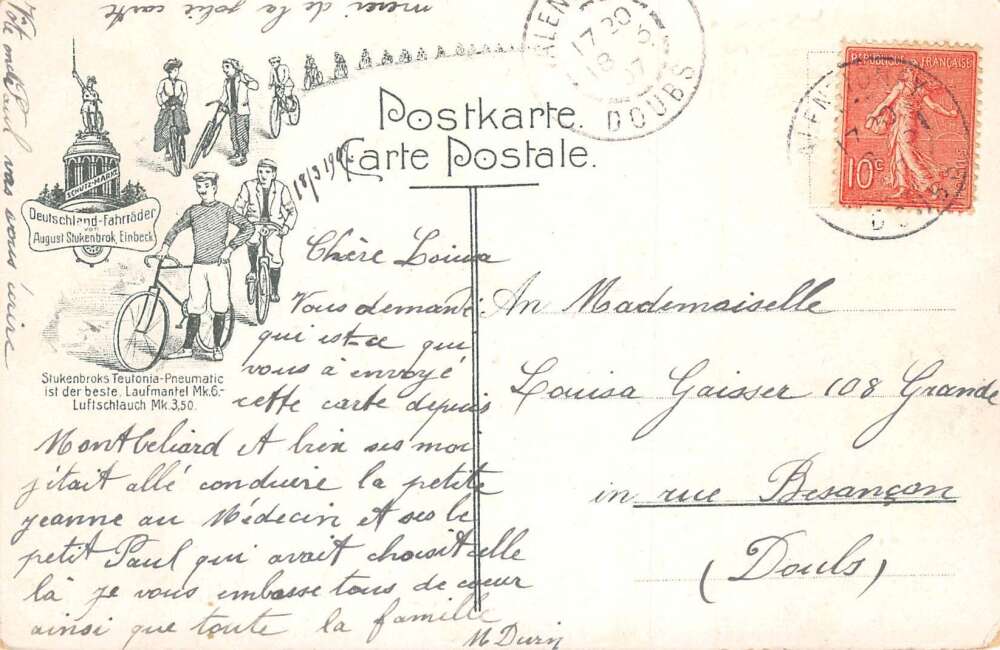 merci de la jolie carte
Vôtre ondé Paul vas avons
SCHUTZ-MARKE
Deutschland-Fahrräder
von
August Stukenbrok, Einbeck
Stukenbroks Teutonia-Pneumatic
ist der beste. Laufmantel Mk.6.-
Luftschlauch Mk.3,50.
Postkarte.
Carte Postale.
17 30
18
07
DOUBS
REPUBLIQUE FRANÇAISE
10c
18/5/190
Chère Louisa
Vous demandé
qui est-ce qui
vous à envoyé
cette carte depuis
Montbéliard et bien ses moi
j'était allé conduire la petite
Jeanne au Médecin et ses le
petit Paul qui avait choisit celle
là je vous embasse tous de cœur
ainsi que toute la famille
M Durin
An Mademaiselle
Louisa Gaisser 108 Grande
in rue Besançon
(Doubs)